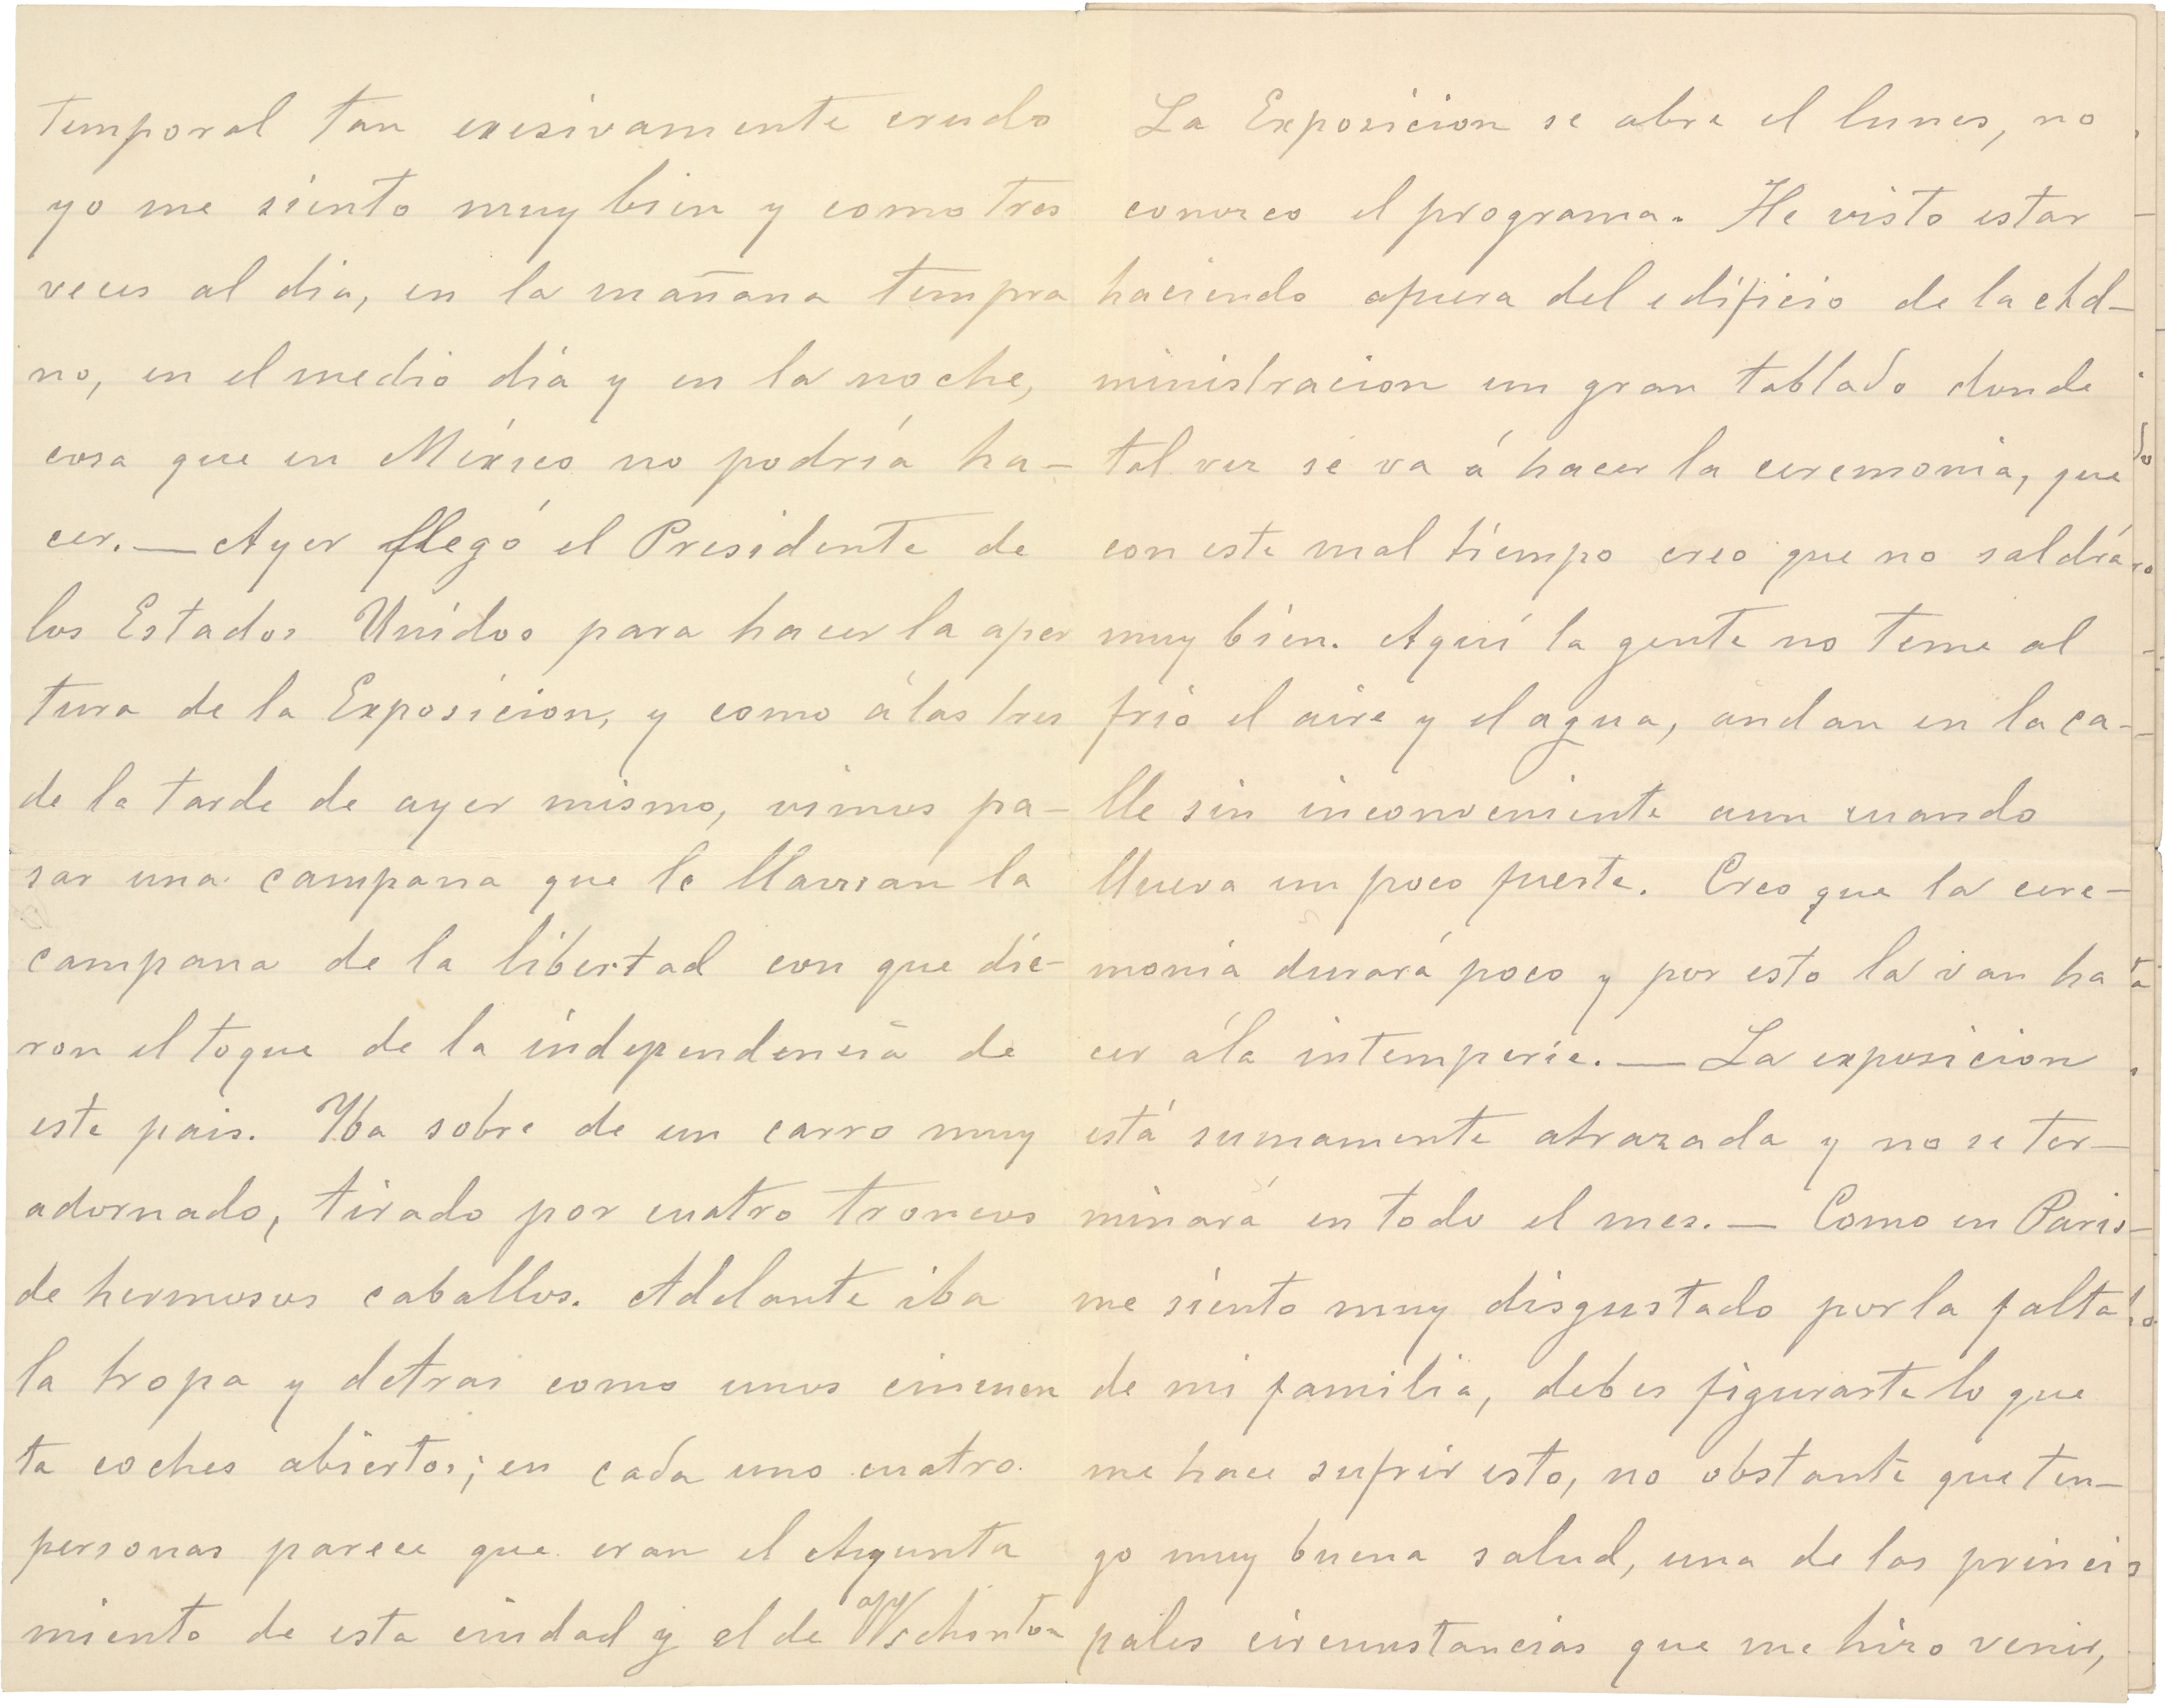 temporal tan exesivamente crudo
yo me siento muy bien y como tres
veces al dia, en la mañana tempra
no, en el medio dia y en la noche,
cosa que en México no podría ha-
cer. — Ayer llegó el Presidente de
los Estados Unidos para hacer la aper
tura de la Exposicion, y como á las tres
de la tarde de ayer mismo, vimos pa-
sar una campana que le llaman la
campana de la libertad con que die-
ron el toque de la independencia de
este pais. Yba sobre de un carro muy
adornado, tirado por cuatro troncos
de hermosos caballos. Adelante iba
la tropa y detras como unos cincuen
ta coches abiertos; en cada uno cuatro
personas parece que eran el Ayunta
miento de esta ciudad y el de
La Exposicion se abre el lunes, no
conozco el programa. He visto estar
haciendo afuera del edificio de la Ad-
ministracion un gran tablado donde
tal vez se va á hacer la ceremonia, que
con este mal tiempo creo que no saldrá
muy bien. Aquí la gente no teme al
frio el aire y el agua, andan en la ca-
lle sin inconveniente aun cuando
llueva un poco fuerte. Creo que la cere-
monia durará poco y por esto la van ha
cer á la intemperie. — La exposicion
está sumamente atrazada y no se ter-
minará en todo el mes. — Como en Paris
me siento muy disgustado por la falta
de mi familia, debes figurarte lo que
me hace sufrir esto, no obstante que ten-
go muy buena salud, una de las princi
pales circunstancias que me hizo venir,